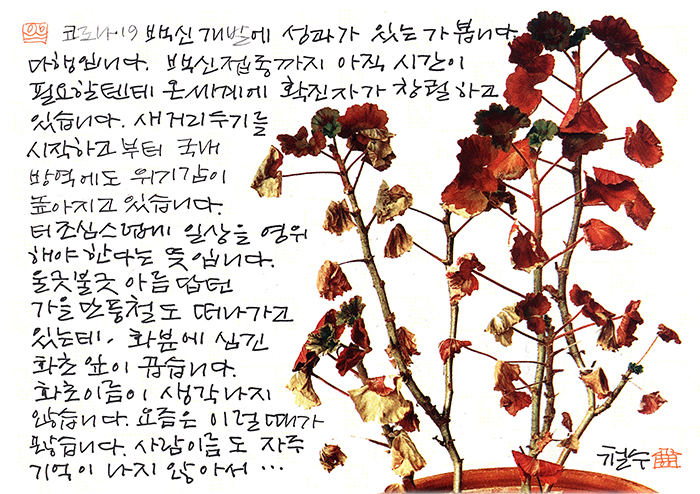 코로나19 백신개발에 성과가 있는가 봅니다
다행입니다. 백신접종까지 아직 시간이
필요할텐데 온세계에 확진자가 창궐하고
있습니다. 새거리두기를
시작하고부터 국내
방역에도 위기감이
높아지고 있습니다.
더조심스럽게 일상을 영위
해야한다는 뜻입니다.
울긋불긋 아름답던
가을 단풍철도 떠나가고
있는데. 화분에 심긴
화초 잎이 곱습니다.
화초이름이 생각나지
않습니다. 요즘은 이럴때가
많습니다. 사람이름도 자주
기억이 나지 않아서 …
철수